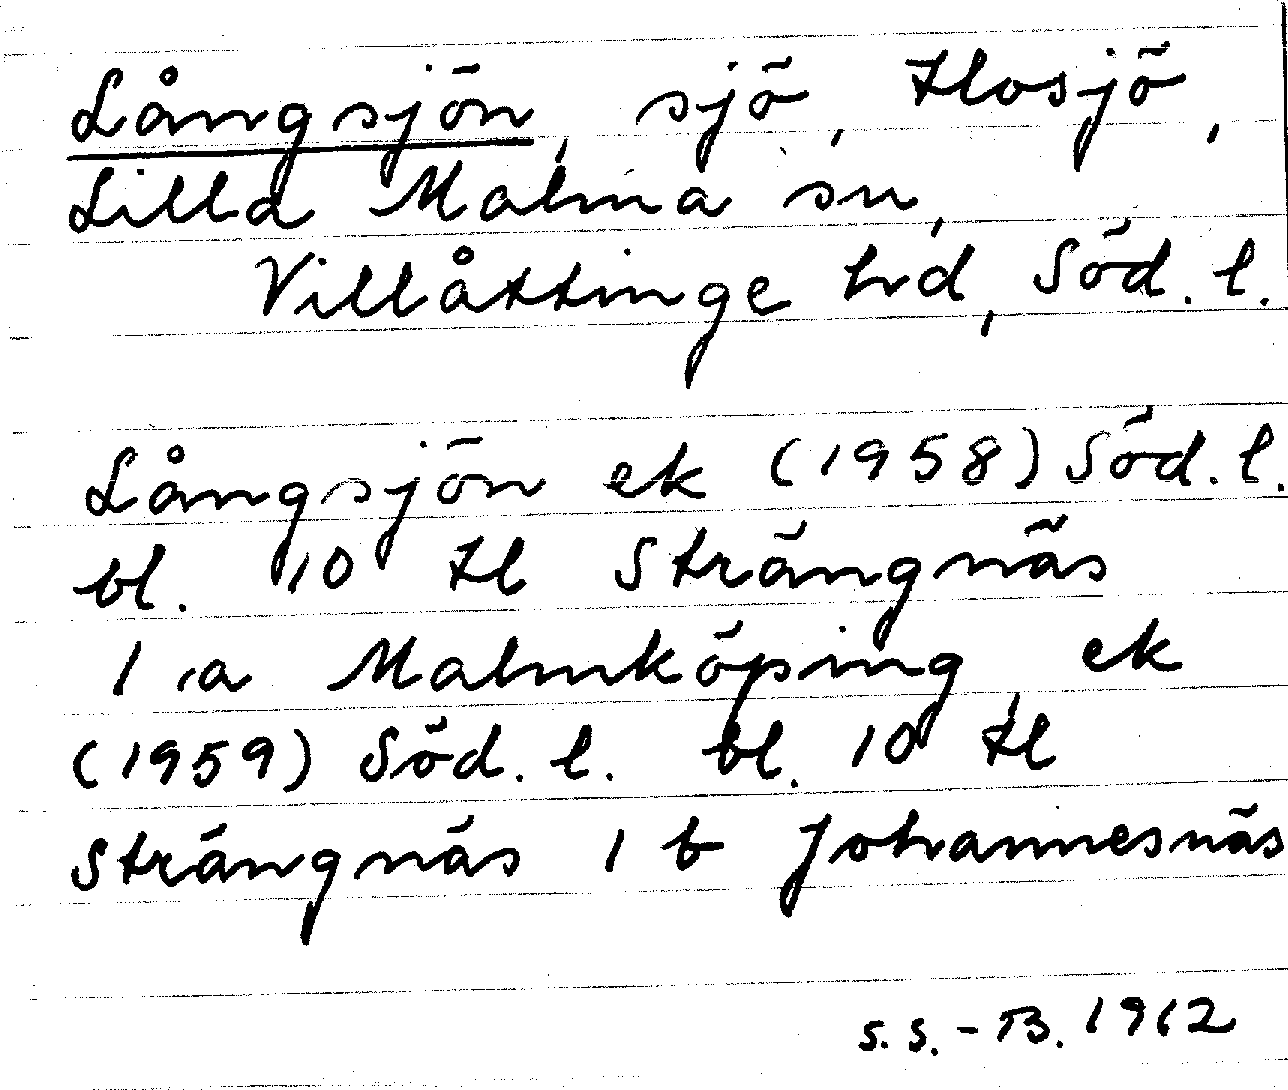 Långsjön, sjö, Hosjö,
Lilla Malma sn,
Villåttinge hd, Söd. l.
Långsjön ek (1958) Söd. l.
bl. 10 H Strängnäs
1 a Malmköping, ek
(1959) Söd. l. bl. 10 H
Strängnäs 1 b Johannesnäs
S. S. - B. 1962